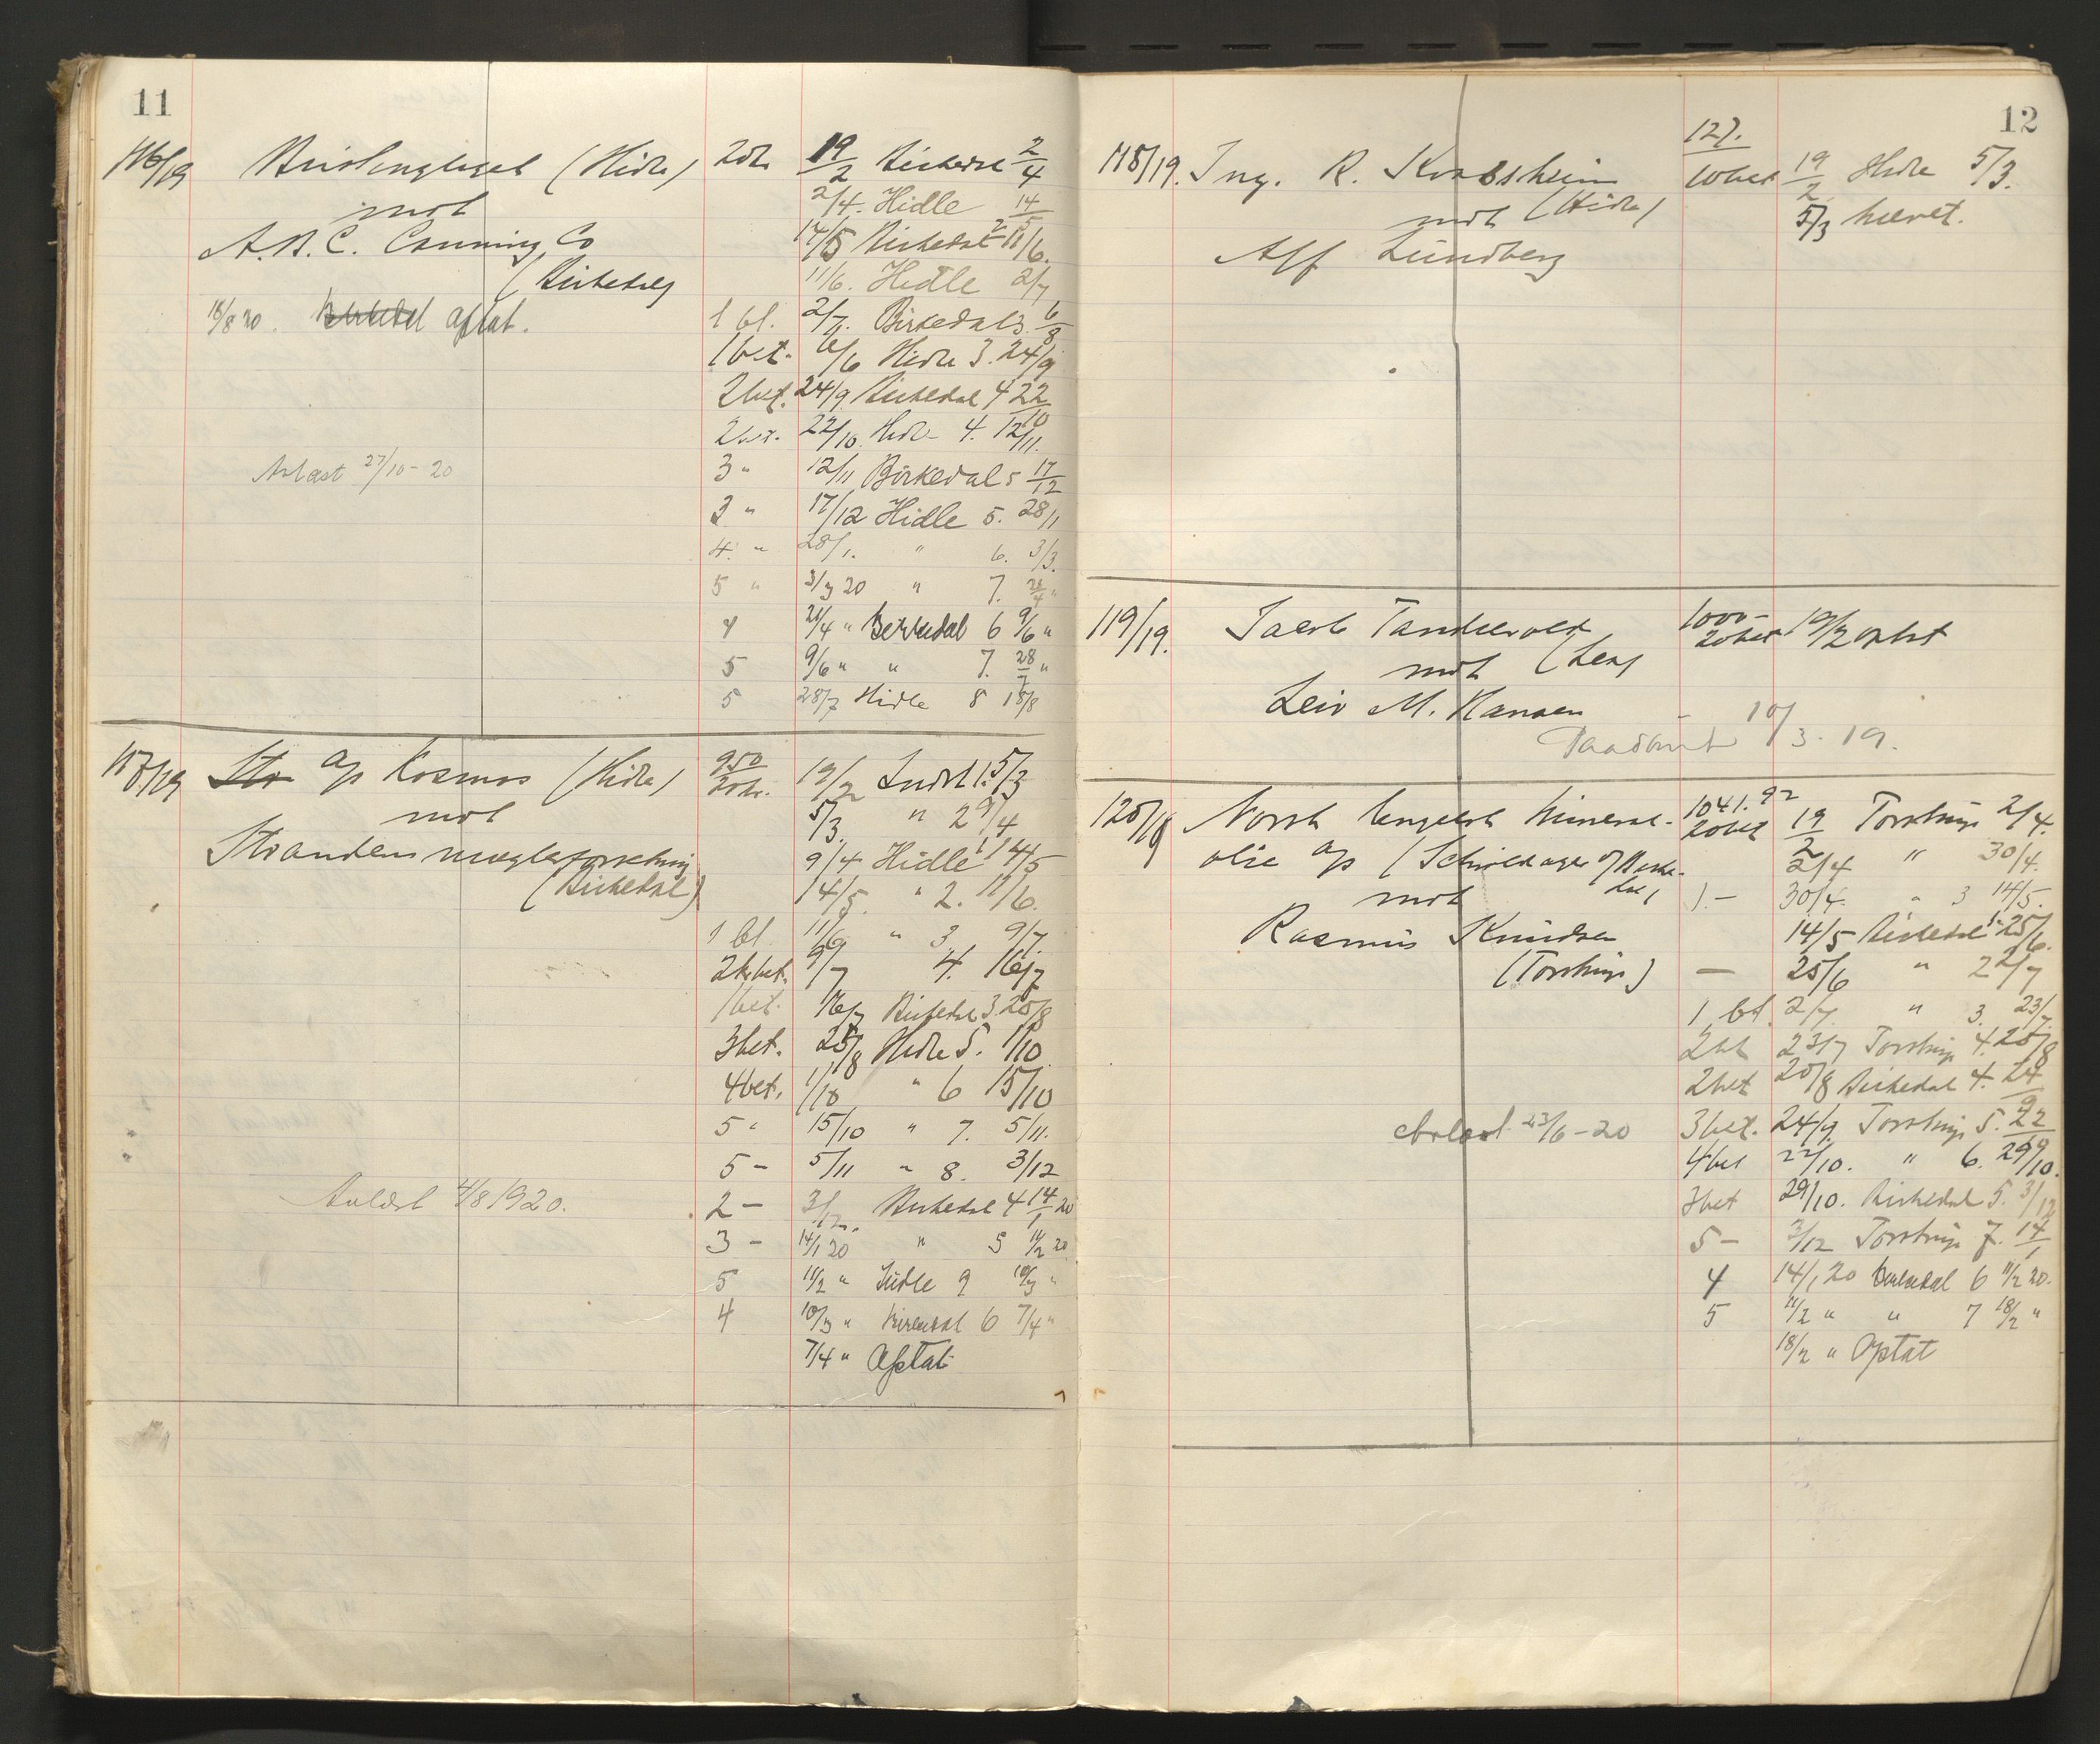 11
116/19 (Hidle) 19/2 Birkedal 2/4
mot 2/4. Hidle 14/5
A.B.C. Canning Co 14/5 Birkedal 2 11/6.
(Birkedal) 11/6. Hidle 2/7
18/8 20. Birkedal optat. 1 bt. 2/7. Birkedal 3. 6/8
1 bet. 6/8 Hidle 3. 24/9
2 bet. 24/9 Birkedal 4 22/10
2 bet. 22/10 Hidle 4. 12/11.
Avlæst 27/10-20 3 " 12/11 Birkedal 5 17/12
3 " 17/12 Hidle 5. 28/1
4. " 28/1. " 6. 3/3.
5 " 3/3 20 " 7. 21/4 "
4 21/4 " Birkedal 6 9/6 "
5 9/6 " " 7. 28/7 "
5 28/7 Hidle 8 18/8
117/19 A/S Kosmos (Hidle) 950 19/2 1. 5/3
mot 5/3. " 2 9/4
Strandens mæglerforretning 9/4 Hidle 1 14/5
(Birkedal) 14/5. " 2. 11/6.
1 bt. 11/6 " 3 9/7.
2 bet. 9/7 4. 16/7
1 bet. 16/7 Birkedal 3. 20/8
3 bet. 20/8 Hidle 5. 1/10
4 bet. 1/10 " 6 15/10
5 " 15/10 " 7. 5/11.
5 - 5/11 " 8. 3/12
Avlæst 4/8 1920. 2 - 3/12. Birkedal 4 14/1 20
3 - 14/1 20 " 5 11/2 20
5 11/2 " Hidle 9 10/3 "
4 10/3 " Birkedal 6 7/4 "
7/4 " Optat
12
127.
118/19. Ing. R. Krabsheim 10 bet 19/2 Hidle 5/3.
mot (Hidle) 5/3 hævet.
Alf Lundberg
119/19. Jacob Tandrevold 1000- 19/2 optat
mot 20 bet
Leiv M. Hansen
Paadømt 10/3. 19.
120/19 Norsk Engelsk Mineral- 1041.92 19/2 Torstrup 2/4.
olie A/S 20 bet 2/4 " 30/4.
mot 1.- 30/4. " 3 14/5.
Rasmus Knudsen 14/5 Birkedal 1. 25/6.
(Torstrup) - 25/6 " 2 2/7
1 bt. 2/7. " 3. 23/7.
2 bt 23/7 Torstrup 4. 20/8
2 bet 20/8 Birkedal 4. 24/9
Avlæst 23/6-20 3 bet. 24/9. Torstrup 5. 22/10
4 bet 22/10. " 6. 29/10.
3 bet 29/10. Birkedal 5. 3/12
5 - 3/12 Torstrup 7. 14/1
4 14/1 20 Birkedal 6 11/2 20.
5 11/2 " " 7 18/2 "
18/2 " Optat